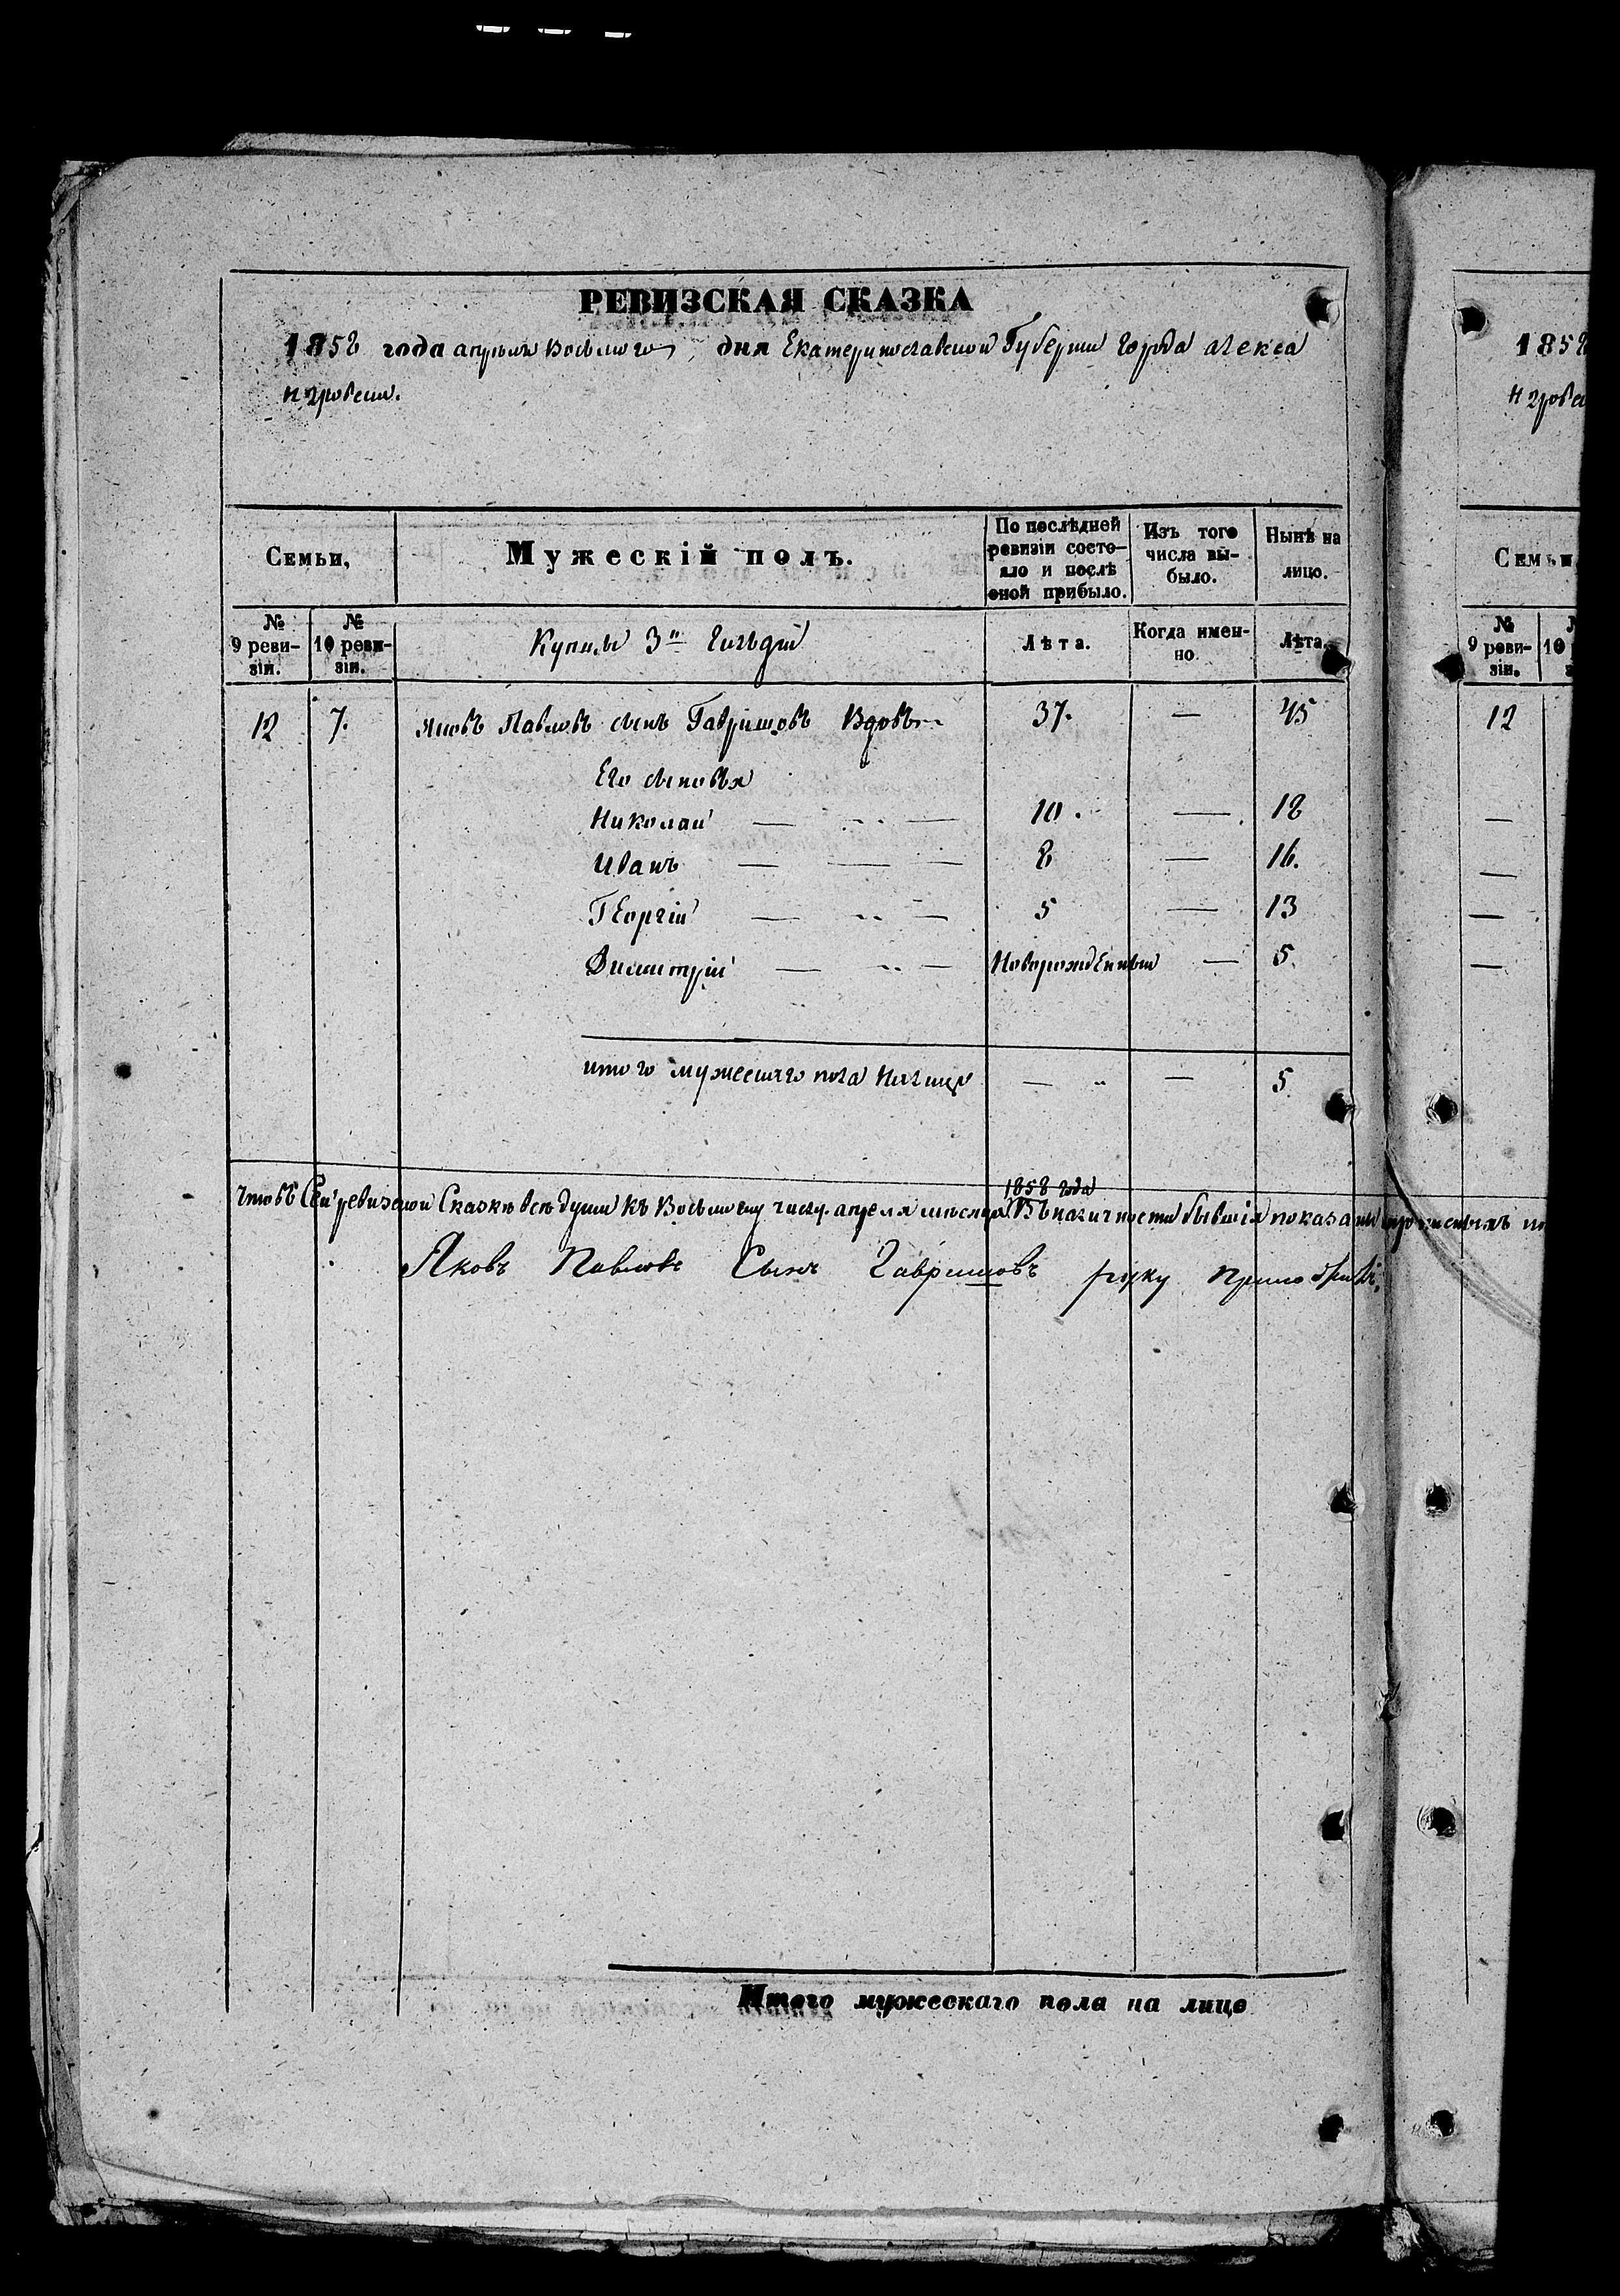 РЕВИЗСКАЯ СКАЗКА
1858 года апрѣля Восьмого дня Екатеринославской Губерніи Города Алекса
1858
н дровска.
Семьи,
Мужескій полъ.
По послѣдней ревизіи состо-
яло и послѣ
оной прибыло.
Изъ того
числа вы-
было.
Нынѣ на
лицо.
№
9 реви-
зіи.
№
10 реви-
зіи.
Купцы 3й Гильдіи
Лѣта.
Когда имен-
но.
Лѣта.
№
9 реви-
зіи.
12
7.
Яковъ Павловъ сынъ Гавришовъ Вдовъ
37.
—
45
12
Его сыновья
Николай — — 10. — 18
Иванъ — — — 8 — 16.
Георгій — — 5 — 13
Димитрій — — Новорожденный — 5.
итого мужескаго пола налицо — — 5.
1858 года
Что въ Сей ревизской Сказкѣ всѣ души къ Восьмому числу апреля мѣсяца Въ наличности бывшія показаны
Яковъ Павловъ Сынъ Гавришовъ руку приложилъ
Итого мужескаго пола на лицо